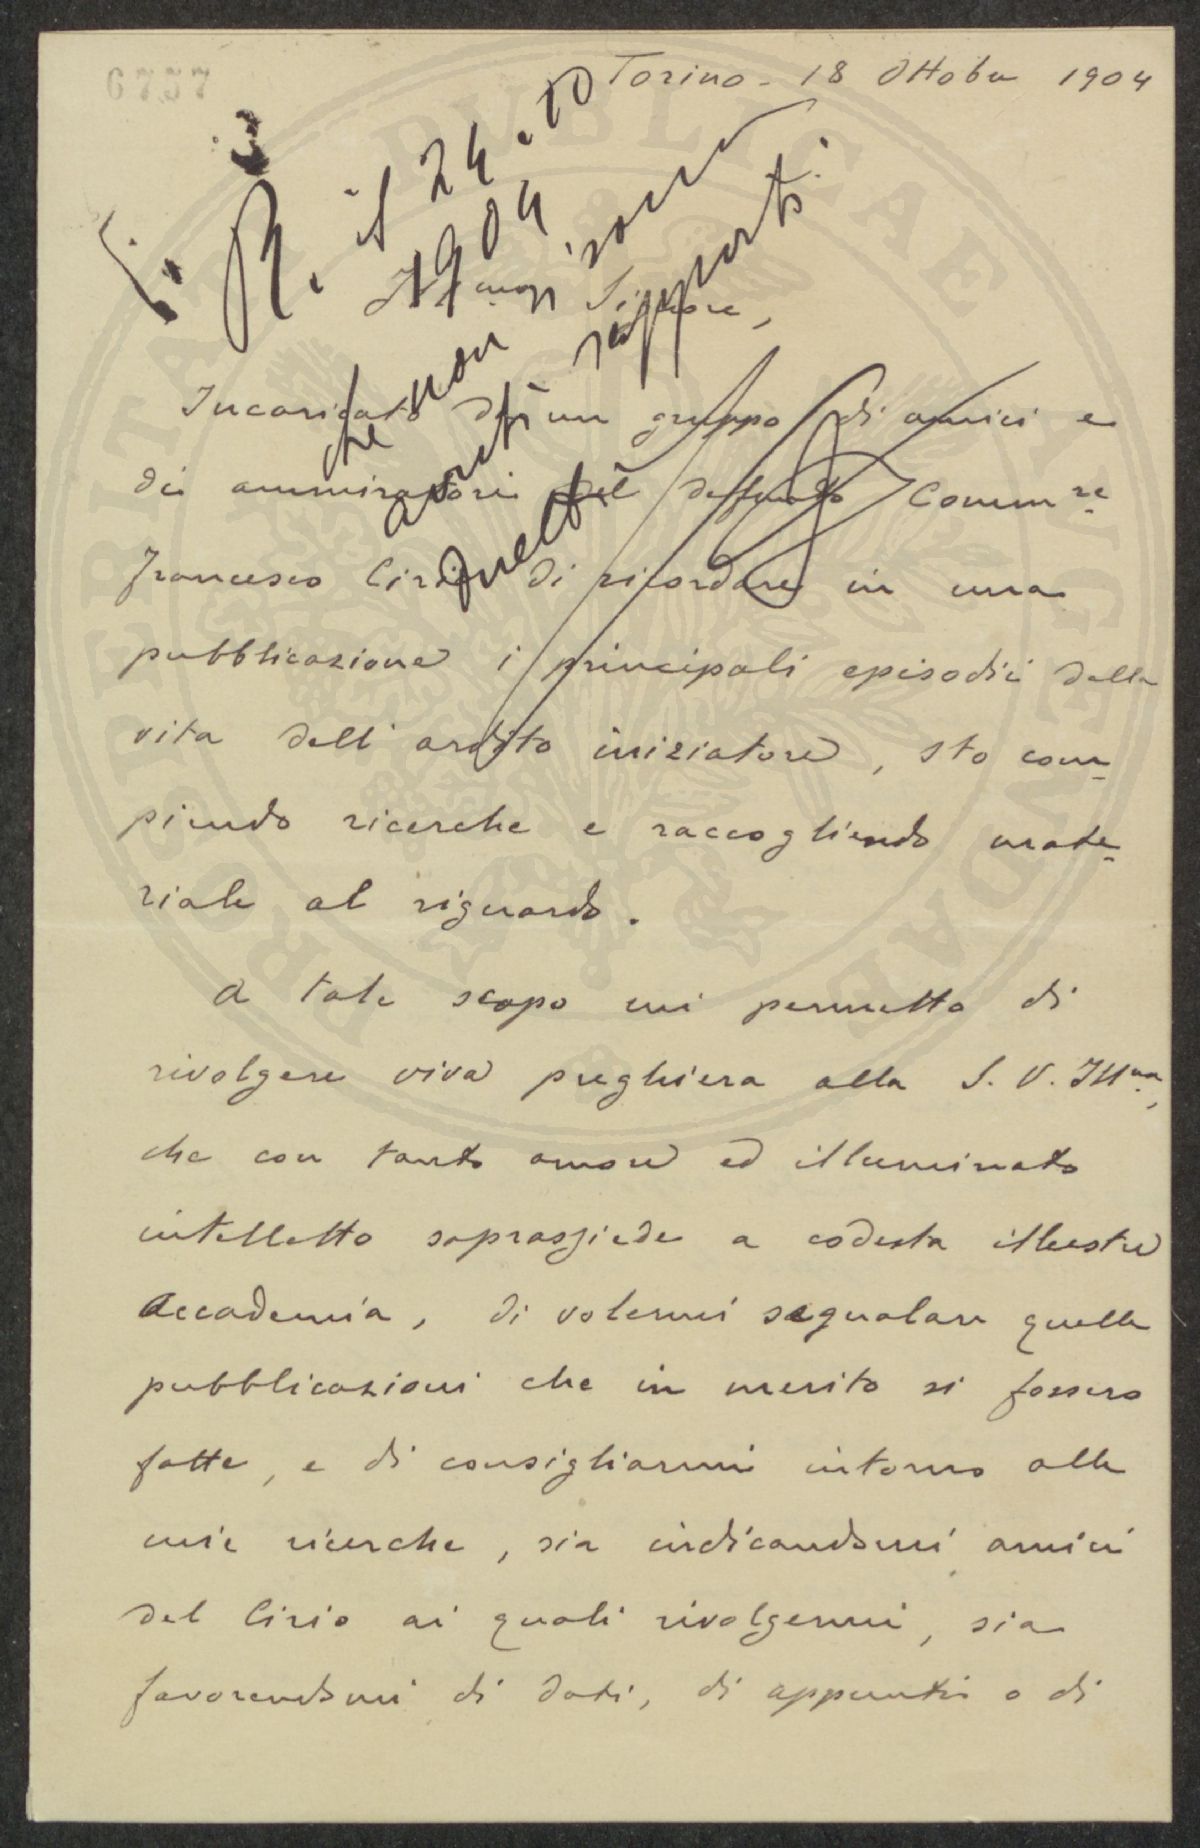 6757
Torino - 18 Ottobre 1904
R. il 24.10
1904
che non si sono
avuti rapporti
quelli
Ill.mo Signore,
Incaricato da un gruppo di amici e
di ammiratori del defunto Comm.re
Francesco Cirio di ricordare in una
pubblicazione i principali episodi della
vita dell'ardito iniziatore, sto com-
piendo ricerche e raccogliendo mate-
riale al riguardo.
A tale scopo mi permetto di
rivolgere viva preghiera alla S. V. Ill.ma,
che con tanto amore ed illuminato
intelletto soprassiede a codesta illustre
Accademia, di volermi segnalare quelle
pubblicazioni che in merito si fossero
fatte, e di consigliarmi intorno alle
mie ricerche, sia indicandomi amici
del Cirio ai quali rivolgermi, sia
favorendomi di dati, di appunti o di
PROSPERITATI PUBLICAE AUGENDAE